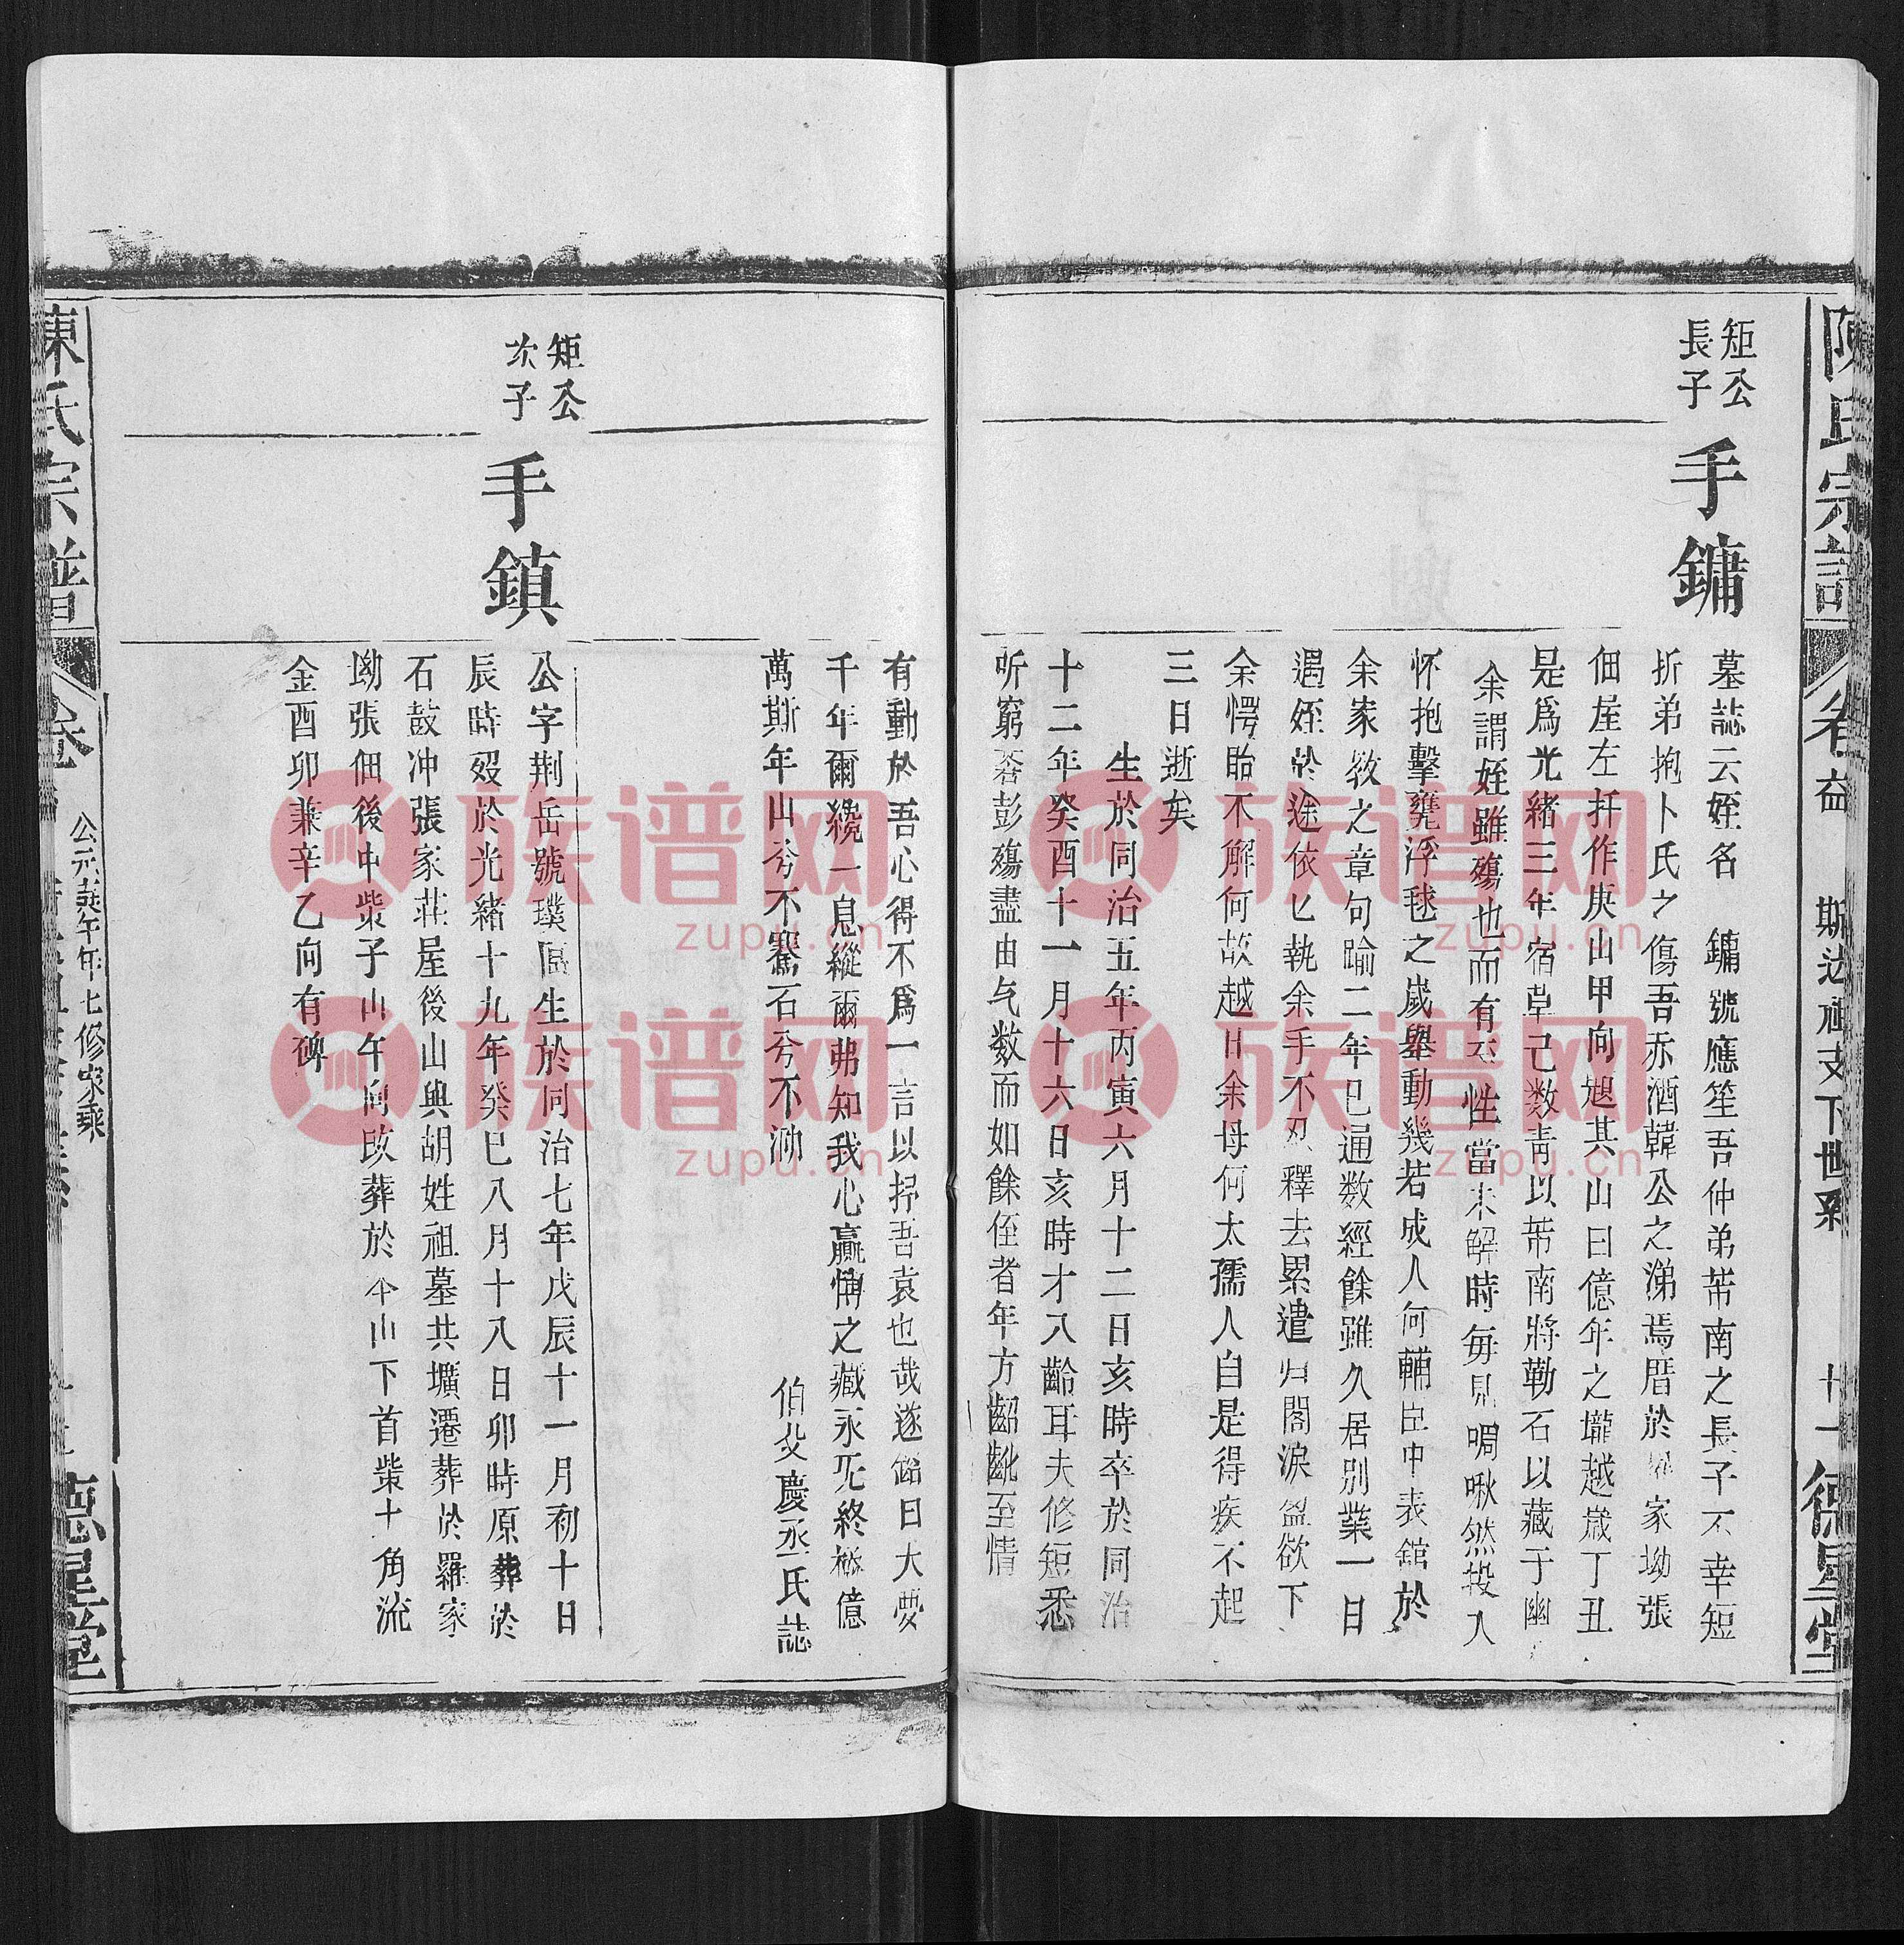 陳氏宗譜
卷益
斯达祠支下世系
十一
德星堂
矩公
長子
手鏞
墓誌云姪名 鏞號應笙吾仲弟芾南之長子不幸短
折弟抱卜氏之傷吾赤洒韓公之涕焉厝於 家坳張
佃屋左扦作庚山甲向題其山曰億年之壠越歲丁丑
是爲光緒三年宿草己数靑以芾南將勒石以藏于幽
余謂姪雖殤也而有至性當未解時每見啁啾然投入
怀抱擊甕浮毬之嵗舉動幾若成人何輔臣中表舘於
余家敎之章句踰二年已通数經餘雖久居别業一日
遇姪於途依匕執余手不忍釋去累遣归閣淚盈欲下
余愕眙不解何故越日余母何太孺人自是得疾不起
三日逝矣
生於同治五年丙寅六月十二日亥時卒於同治
十二年癸酉十一月十六日亥時才八齡耳夫修短悉
听窮 彭殤盡由气数而如餘侄者年方齠齔至情
有動於吾心得不爲一言以抒吾哀也哉遂銘曰大夢
千年爾纔一息縱爾弗知我心贏悁之藏永死終極億
萬斯年山兮不騫石兮不泐
伯父慶丞氏誌
矩公
次子
手鎮
公字荆岳號璞區生於同治七年戊辰十一月初十日
辰時殁於光緒十九年癸巳八月十八日卯時原葬於
石鼓冲張家莊屋後山與胡姓祖墓共壙遷葬於羅家
坳張佃後中柴子山午向改葬於本山下首柴十角流
金酉卯兼辛乙向有碑
陳氏宗譜
卷
公元 午年七修家乘
德星堂